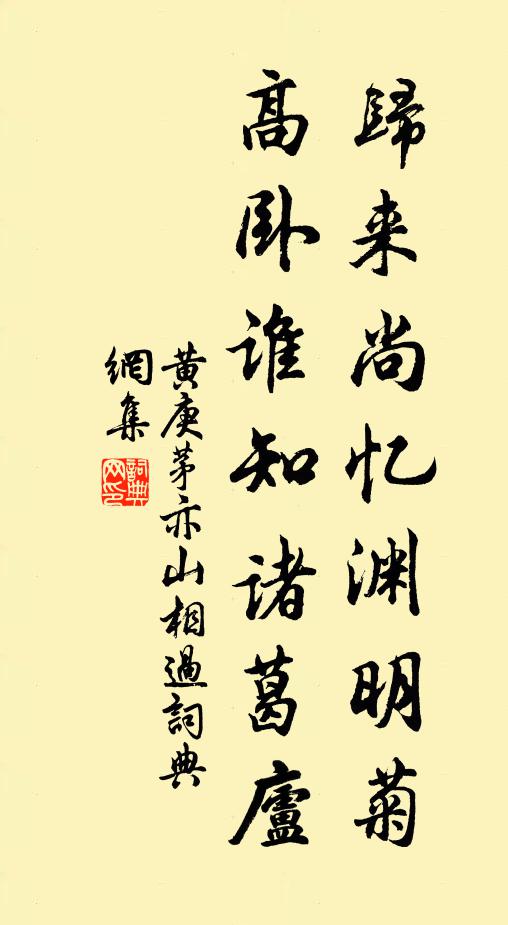 歸来尚忆渊明菊
高卧谁知诸葛廬
黄庚茅亦山相過詞典
網集
詞典网印